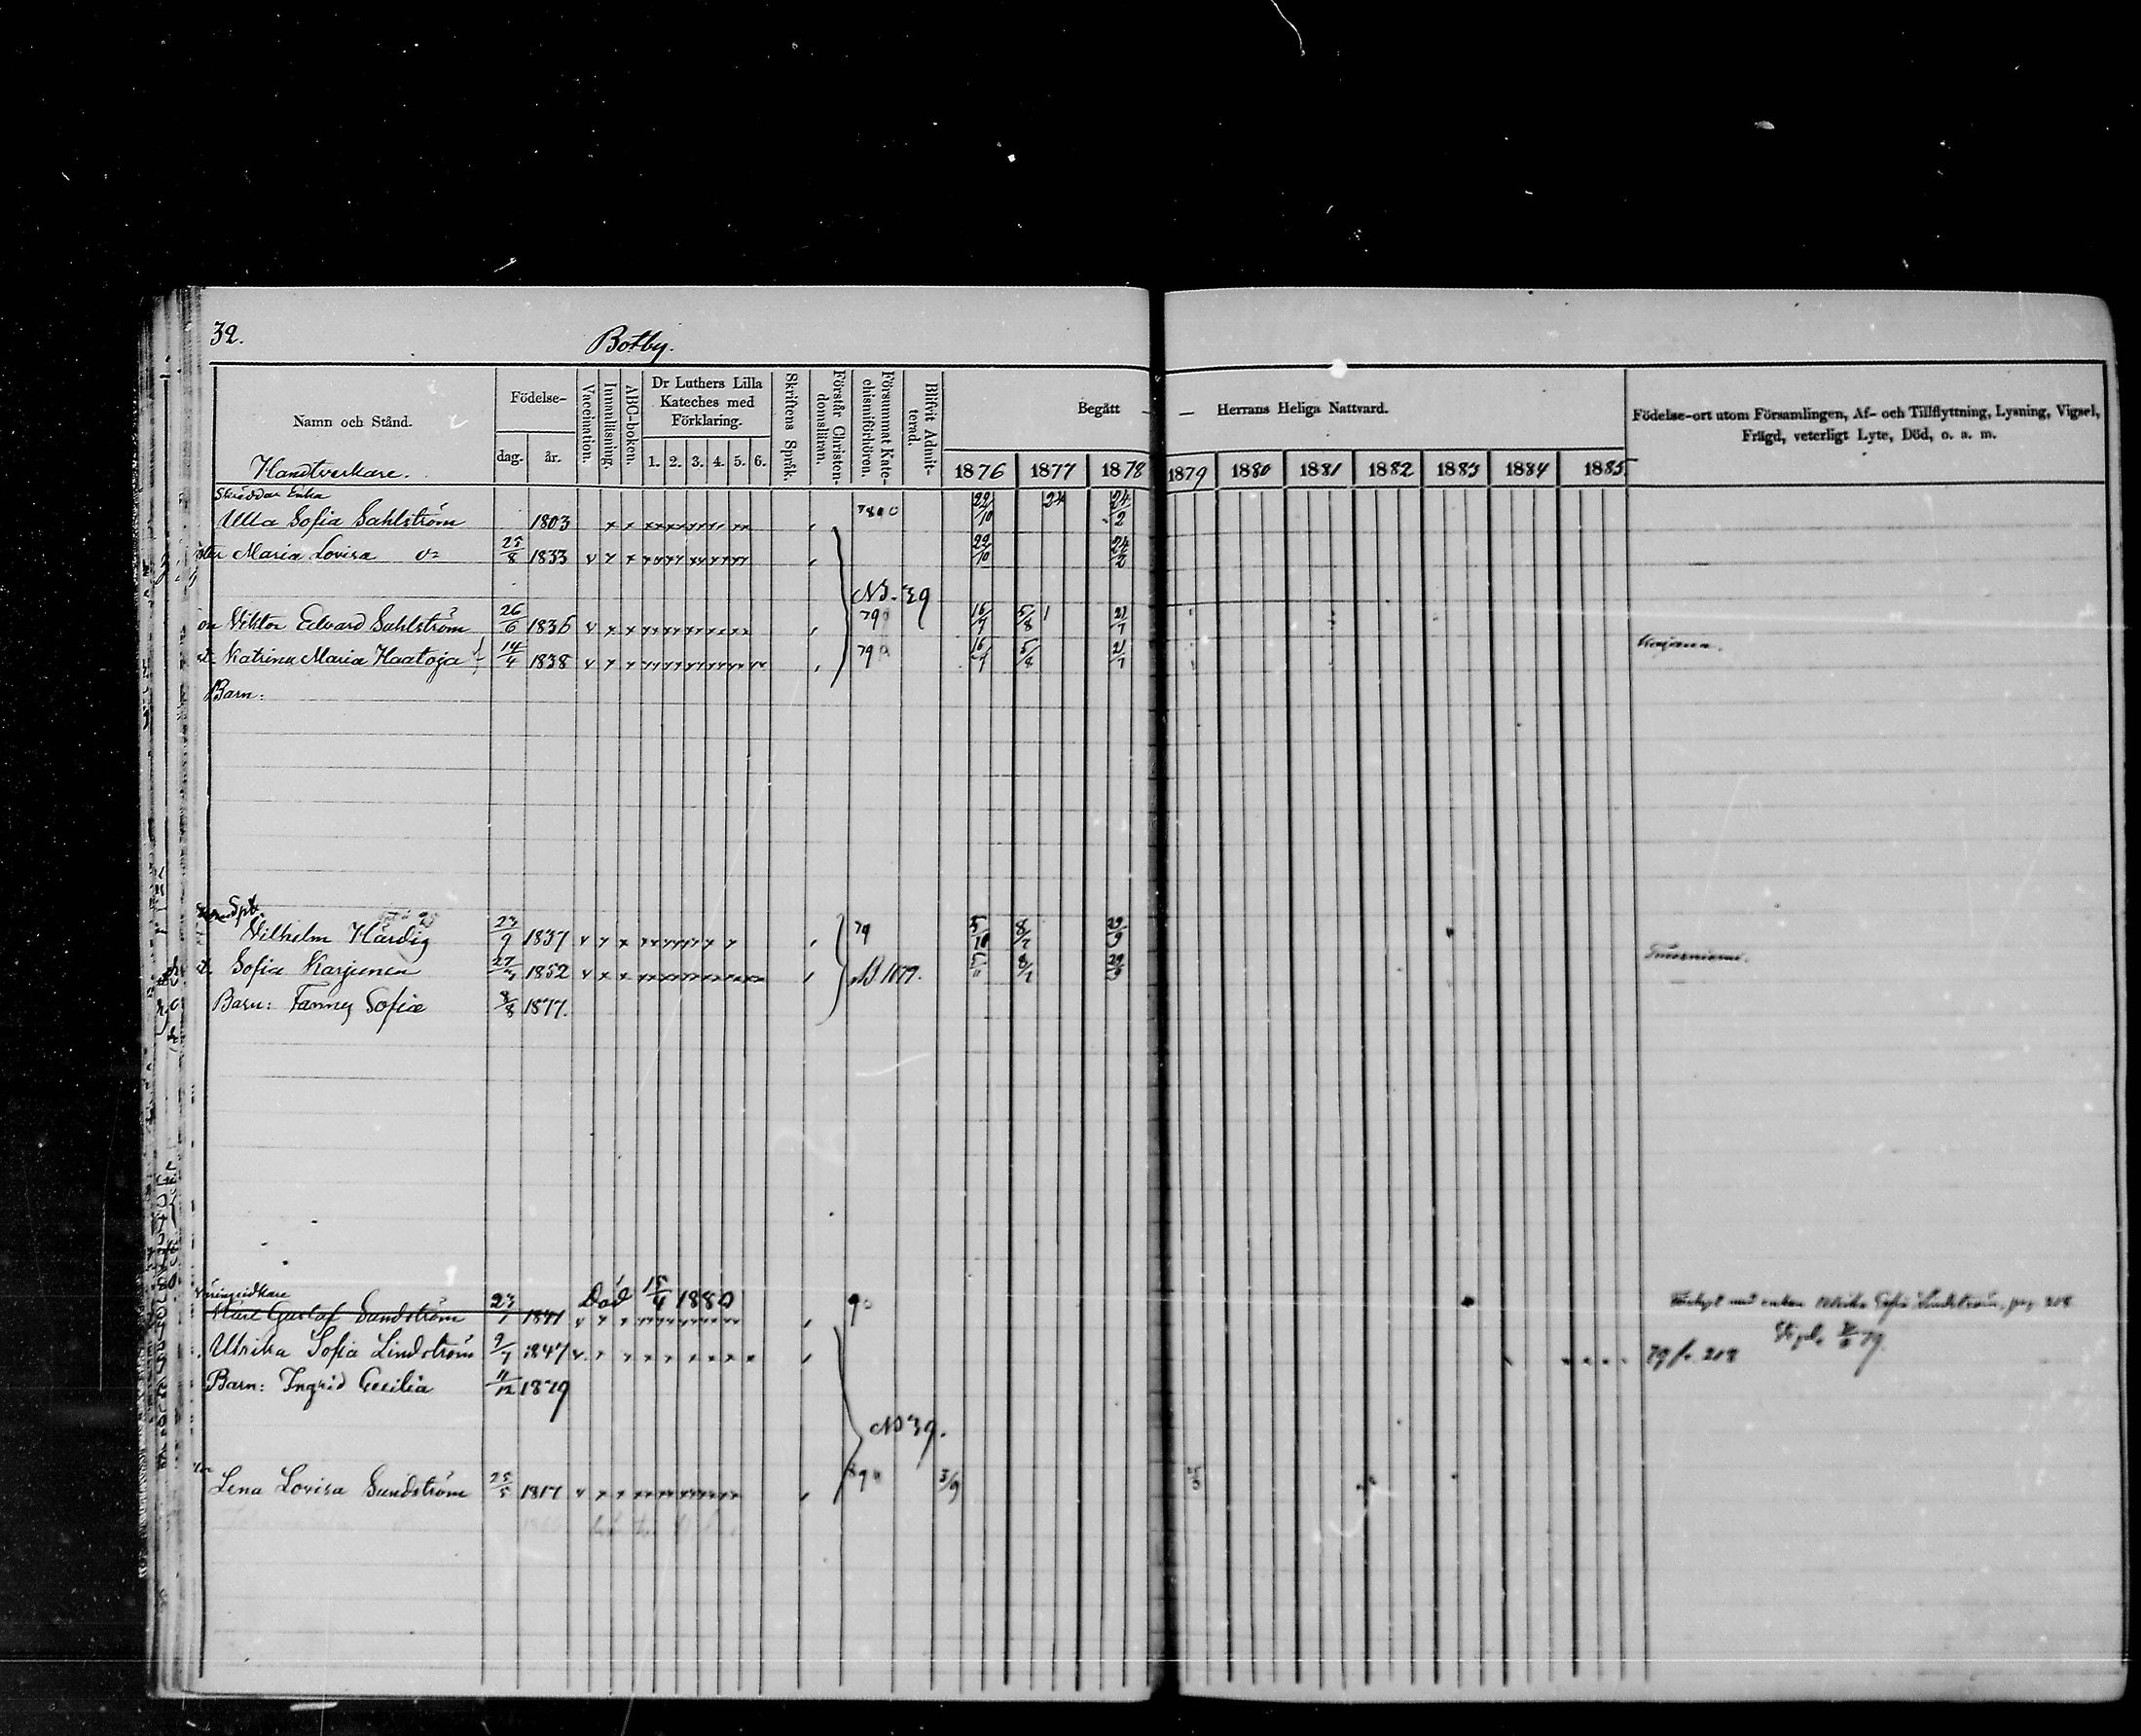 32.
Botby.
Namn och Stånd.
Födelse-
dag. år.
Vaccination.
Innanläsning.
ABC-boken.
Dr Luthers Lilla Kateches med Förklaring.
1. 2. 3. 4. 5. 6.
Skriftens Språk.
Förstår Christendomsläran.
Försummat Katechismiförhören.
Blifvit Admitterad.
Begått — — Herrans Heliga Nattvard.
1876 1877 1878 1879 1880 1881 1882 1883 1884 1885
Födelse-ort utom Församlingen, Af- och Tillflyttning, Lysning, Vigsel,
Frägd, veterligt Lyte, Död, o. a. m.
Handtverkare.
Skräddar Enka
Ulla Sofia Sahlström 1803 22/10 24 24/2
Maria Lovisa 25/8 1833 v 22/10 24/2
Viktor Edvard Sahlström 26/6 1836 v 79 16/7 5/8 21/7
Katrina Maria Haatoja 14/4 1838 v 79 16/7 5/8 21/7 Kajana.
Barn:
Vilhelm Härdig 23/9 1837 v 79 5/10 8/7 29/9
Sofia Karjunen 1852 v 8/7 29/9
Barn: Fanny Sofia 8/8 1877.
Karl Gustaf Sundström 1841 Död 15/4 1880
Ulrika Sofia Lindström 9/7 1847 v 79 208
Barn: Ingrid Cecilia 11/12 1879
Lena Lovisa Sundström 25/5 1817 v 3/9